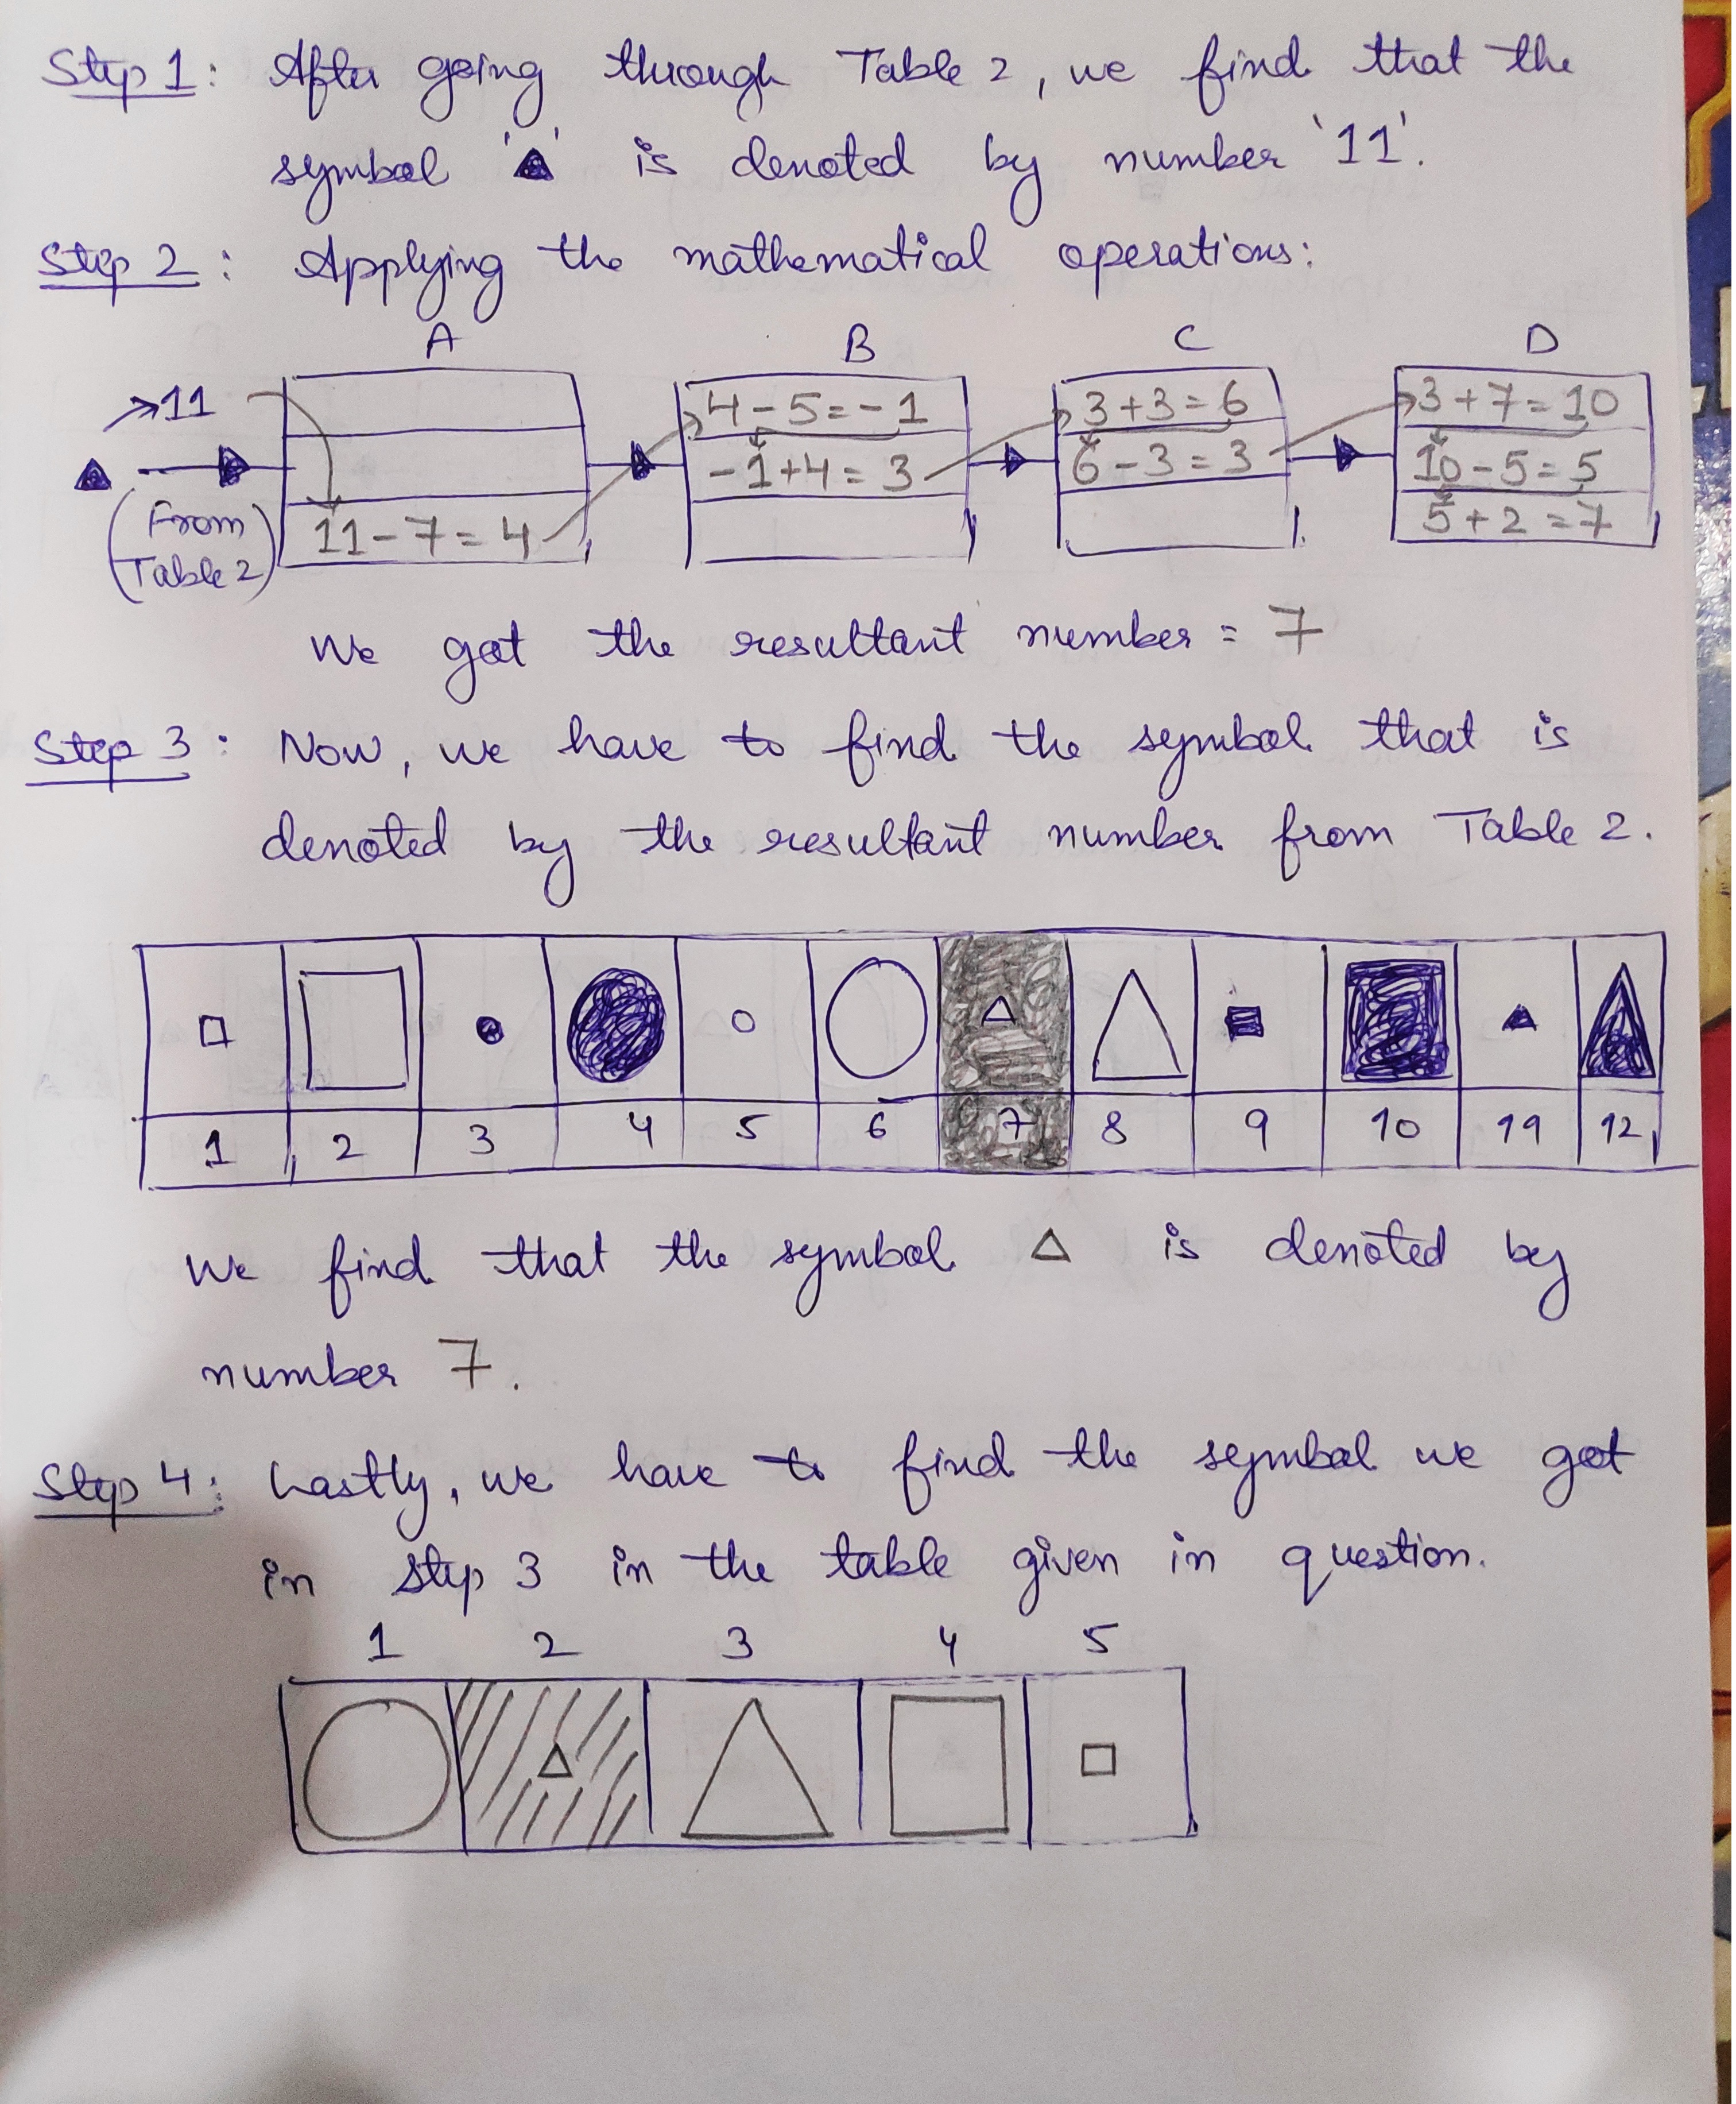 Step 1: After going through Table 2, we find that the
symbol '▲' is denoted by number '11'.
Step 2: Applying the mathematical operations:
A B C D
11
4-5=-1 3+3=6 3+7=10
▲ -1+4=3 6-3=3 10-5=5
(From Table 2) 11-7=4 5+2=7
We got the resultant number = 7
Step 3: Now, we have to find the symbol that is
denoted by the resultant number from Table 2.
1 2 3 4 5 6 7 8 9 10 11 12
We find that the symbol △ is denoted by
number 7.
Step 4: Lastly, we have to find the symbol we got
in step 3 in the table given in question.
1 2 3 4 5